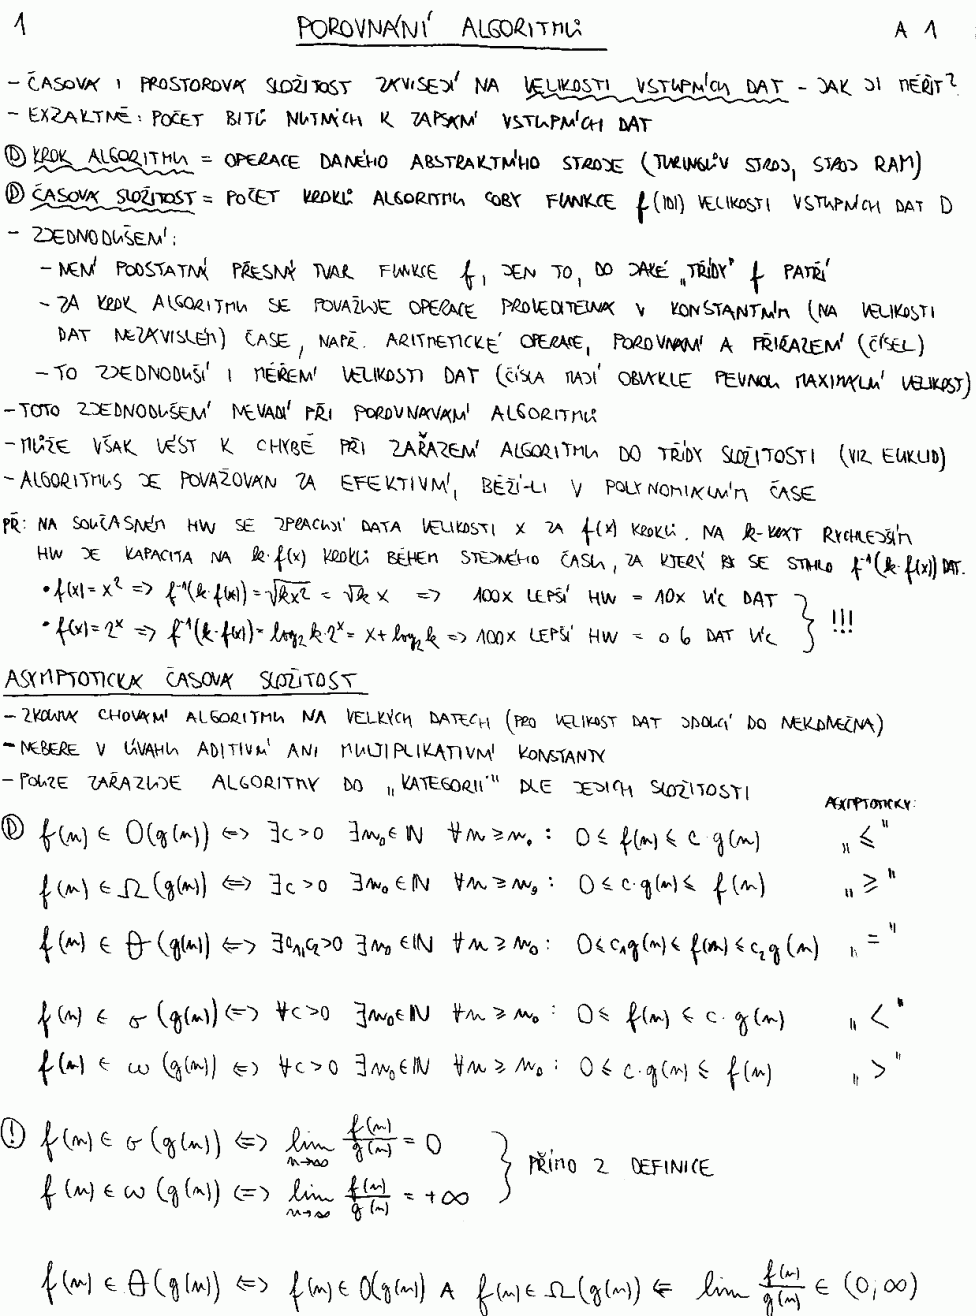 1 POROVNÁNÍ ALGORITMŮ A 1
- ČASOVÁ I PROSTOROVÁ SLOŽITOST ZÁVISEJÍ NA VELIKOSTI VSTUPNÍCH DAT - JAK JI MĚŘIT?
- EXZAKTNĚ: POČET BITŮ NUTNÝCH K ZAPSÁNÍ VSTUPNÍCH DAT
Ⓓ KROK ALGORITMU = OPERACE DANÉHO ABSTRAKTNÍHO STROJE (TURINGŮV STROJ, STROJ RAM)
Ⓓ ČASOVÁ SLOŽITOST = POČET KROKŮ ALGORITMU COBY FUNKCE f(|D|) VELIKOSTI VSTUPNÍCH DAT D
- ZJEDNODUŠENÍ:
- NENÍ PODSTATNÝ PŘESNÝ TVAR FUNKCE f, JEN TO, DO JAKÉ „TŘÍDY" f PATŘÍ
- ZA KROK ALGORITMU SE POVAŽUJE OPERACE PROVEDITELNÁ V KONSTANTNÍM (NA VELIKOSTI
DAT NEZÁVISLÉM) ČASE, NAPŘ. ARITMETICKÉ OPERACE, POROVNÁNÍ A PŘIŘAZENÍ (ČÍSEL)
- TO ZJEDNODUŠÍ I MĚŘENÍ VELIKOSTI DAT (ČÍSLA MAJÍ OBVYKLE PEVNOU MAXIMÁLNÍ VELIKOST)
- TOTO ZJEDNODUŠENÍ NEVADÍ PŘI POROVNÁVÁNÍ ALGORITMŮ
- MŮŽE VŠAK VÉST K CHYBĚ PŘI ZAŘAZENÍ ALGORITMU DO TŘÍDY SLOŽITOSTI (VIZ EUKLID)
- ALGORITMUS JE POVAŽOVÁN ZA EFEKTIVNÍ, BĚŽÍ-LI V POLYNOMIÁLNÍM ČASE
PŘ: NA SOUČASNÉM HW SE ZPRACUJÍ DATA VELIKOSTI X ZA f(x) KROKŮ. NA k-KRÁT RYCHLEJŠÍM
HW JE KAPACITA NA k·f(x) KROKŮ BĚHEM STEJNÉHO ČASU, ZA KTERÝ BY SE STIHLO f⁻¹(k·f(x)) DAT.
• f(x) = x² => f⁻¹(k·f(x)) = √(kx²) = √k x => 100X LEPŠÍ HW = 10X VÍC DAT
• f(x) = 2ˣ => f⁻¹(k·f(x)) = log₂ k·2ˣ = x + log₂ k => 100X LEPŠÍ HW = O 6 DAT VÍC } !!!
ASYMPTOTICKÁ ČASOVÁ SLOŽITOST
- ZKOUMÁ CHOVÁNÍ ALGORITMU NA VELKÝCH DATECH (PRO VELIKOST DAT JDOUCÍ DO NEKONEČNA)
- NEBERE V ÚVAHU ADITIVNÍ ANI MULTIPLIKATIVNÍ KONSTANTY
- POUZE ZAŘAZUJE ALGORITMY DO „KATEGORIÍ" DLE JEJICH SLOŽITOSTI
ASYMPTOTICKY:
Ⓓ f(n) ∈ O(g(n)) <=> ∃c>0 ∃n₀∈ℕ ∀n ≥ n₀: 0 ≤ f(n) ≤ c·g(n) „≤"
f(n) ∈ Ω(g(n)) <=> ∃c>0 ∃n₀∈ℕ ∀n ≥ n₀: 0 ≤ c·g(n) ≤ f(n) „≥"
f(n) ∈ Θ(g(n)) <=> ∃c₁,c₂>0 ∃n₀∈ℕ ∀n ≥ n₀: 0 ≤ c₁g(n) ≤ f(n) ≤ c₂g(n) „="
f(n) ∈ σ(g(n)) <=> ∀c>0 ∃n₀∈ℕ ∀n ≥ n₀: 0 ≤ f(n) ≤ c·g(n) „<"
f(n) ∈ ω(g(n)) <=> ∀c>0 ∃n₀∈ℕ ∀n ≥ n₀: 0 ≤ c·g(n) ≤ f(n) „>"
(!) f(n) ∈ σ(g(n)) <=> lim n→∞ f(n)/g(n) = 0
f(n) ∈ ω(g(n)) <=> lim n→∞ f(n)/g(n) = +∞ } PŘÍMO Z DEFINICE
f(n) ∈ Θ(g(n)) <=> f(n) ∈ O(g(n)) ∧ f(n) ∈ Ω(g(n)) <= lim f(n)/g(n) ∈ (0,∞)